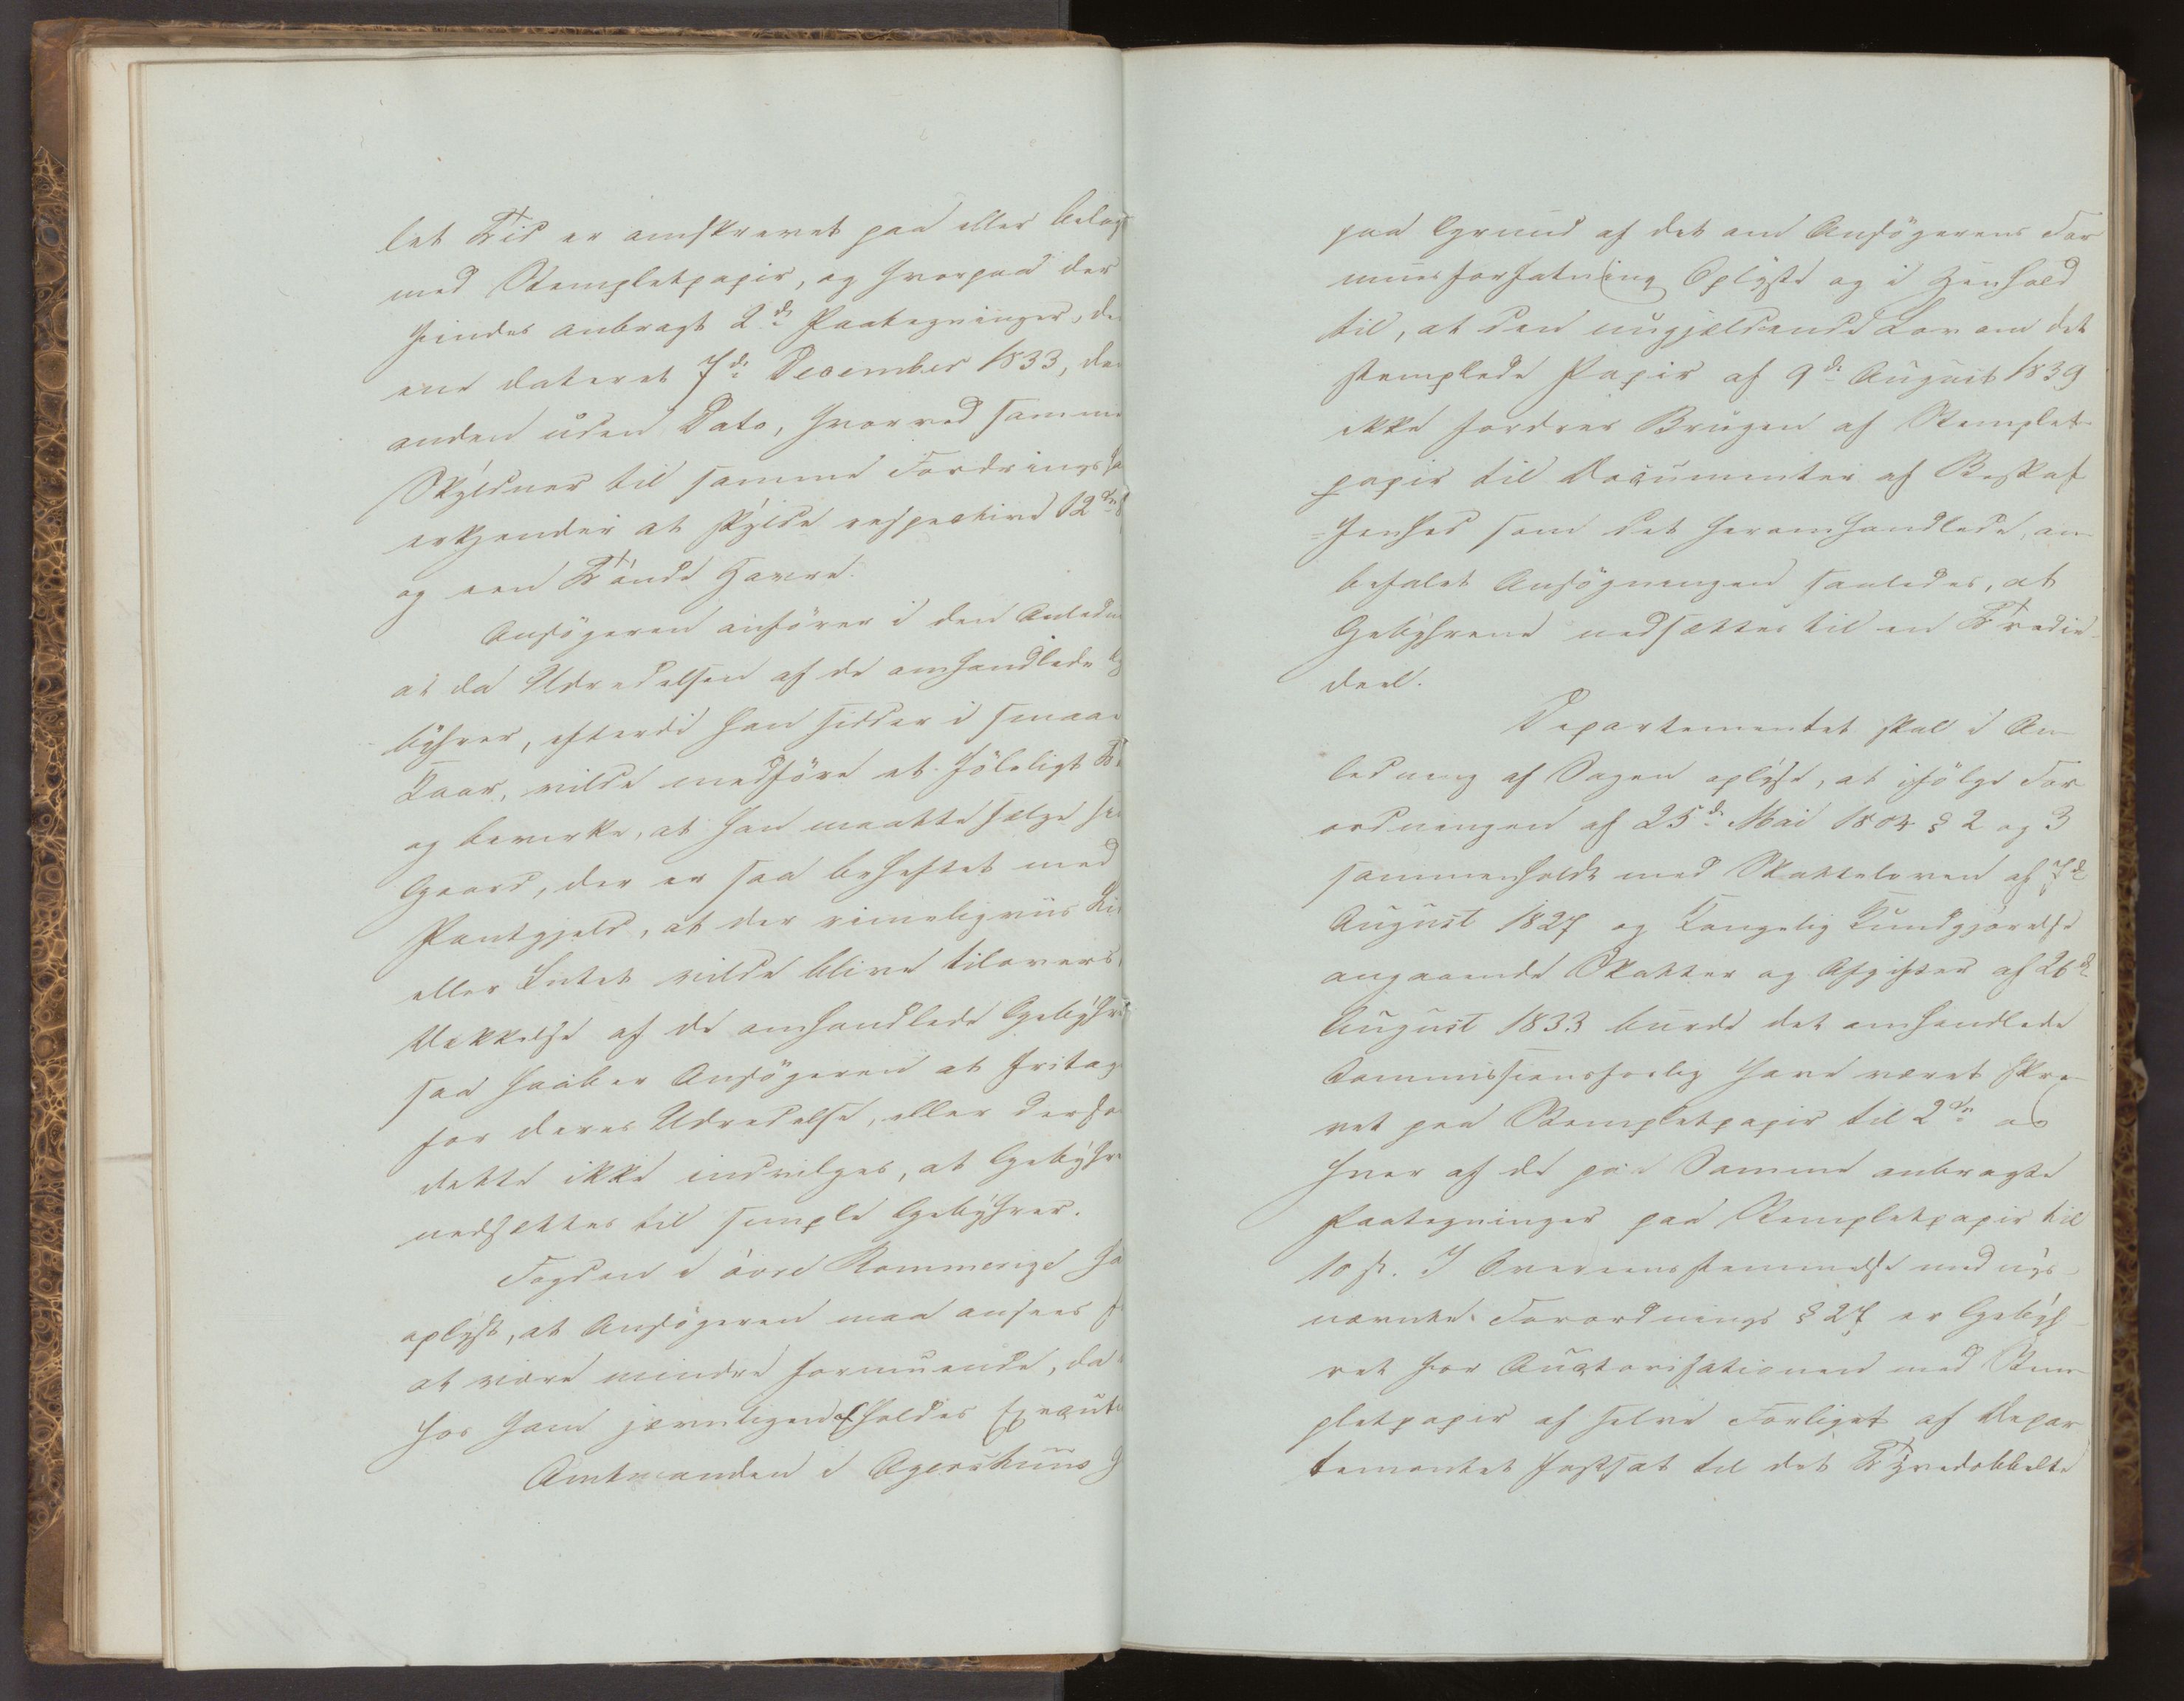 let Tid er omskrevet paa eller belagt
med Stempletpapir, og hvorpaa der
findes anbragt 2de Paategninger, den
ene dateret 7de December 1833, den
anden uden Dato, hvorved samme
Skyldner til samme Fordringsha
erkjender at skylde respective 12
og een Tønde Havre.
Ansøgeren anfører i den Anledn
at da Udredelsen af de omhandlede Ge
byhrer, efterdi han sidder i smaae
Kaar, vilde medføre et føleligt
og bevirke, at han maatte sælge sin
Gaard, der er saa behæftet med
Pantgjeld, at der rimeligviis Li
eller Intet vilde blive tilovers
Dækkelse af de omhandlede Gebyhre
saa haaber Ansøgeren at fritag
for deres Udredelse, eller derso
dette ikke indvilges, at Gebyhre
nedsættes til simple Gebyhrer.
Fogden i øvre Rommerige ha
oplyst, at Ansøgeren maa ansees f
at være mindre formuende, da
hos ham jævnligen afholdes Execut
Amtmanden i Agershuus
paa Grund af det om Ansøgerens For
muesforfatning Oplyste og i Henhold
til, at den nugjeldende Lov om det
stemplede Papir af 9de August 1839
ikke fordrer Brugen af Stemplet-
papir til Documenter af Beskaf
=fenhed som det heromhandlede, an
befalet Ansøgningen saaledes, at
Gebyhrene nedsættes til en Tredie-
deel.
Departementet skal i An-
ledning af Sagen oplyse, at ifølge For
ordningen af 25de Mai 1804 § 2 og 3
sammenholdt med Skatteloven af 7de
August 1827 og Kongelig Kundgjørelse
angaaende Skatter og Afgifter af 26de
August 1833 burde det omhandlede
Commissionsforlig have været skre-
vet paa Stempletpapir til 2 og
hver af de paa Samme anbragte
Paategninger paa Stempletpapir til
10 s. I Overeensstemmelse med nys-
nævnte Forordnings § 27 er Gebyh-
ret for Auctorisationen med Stem-
pletpapir af selve Forliget af Depar
tementet fastsat til det Tyvedobbelte